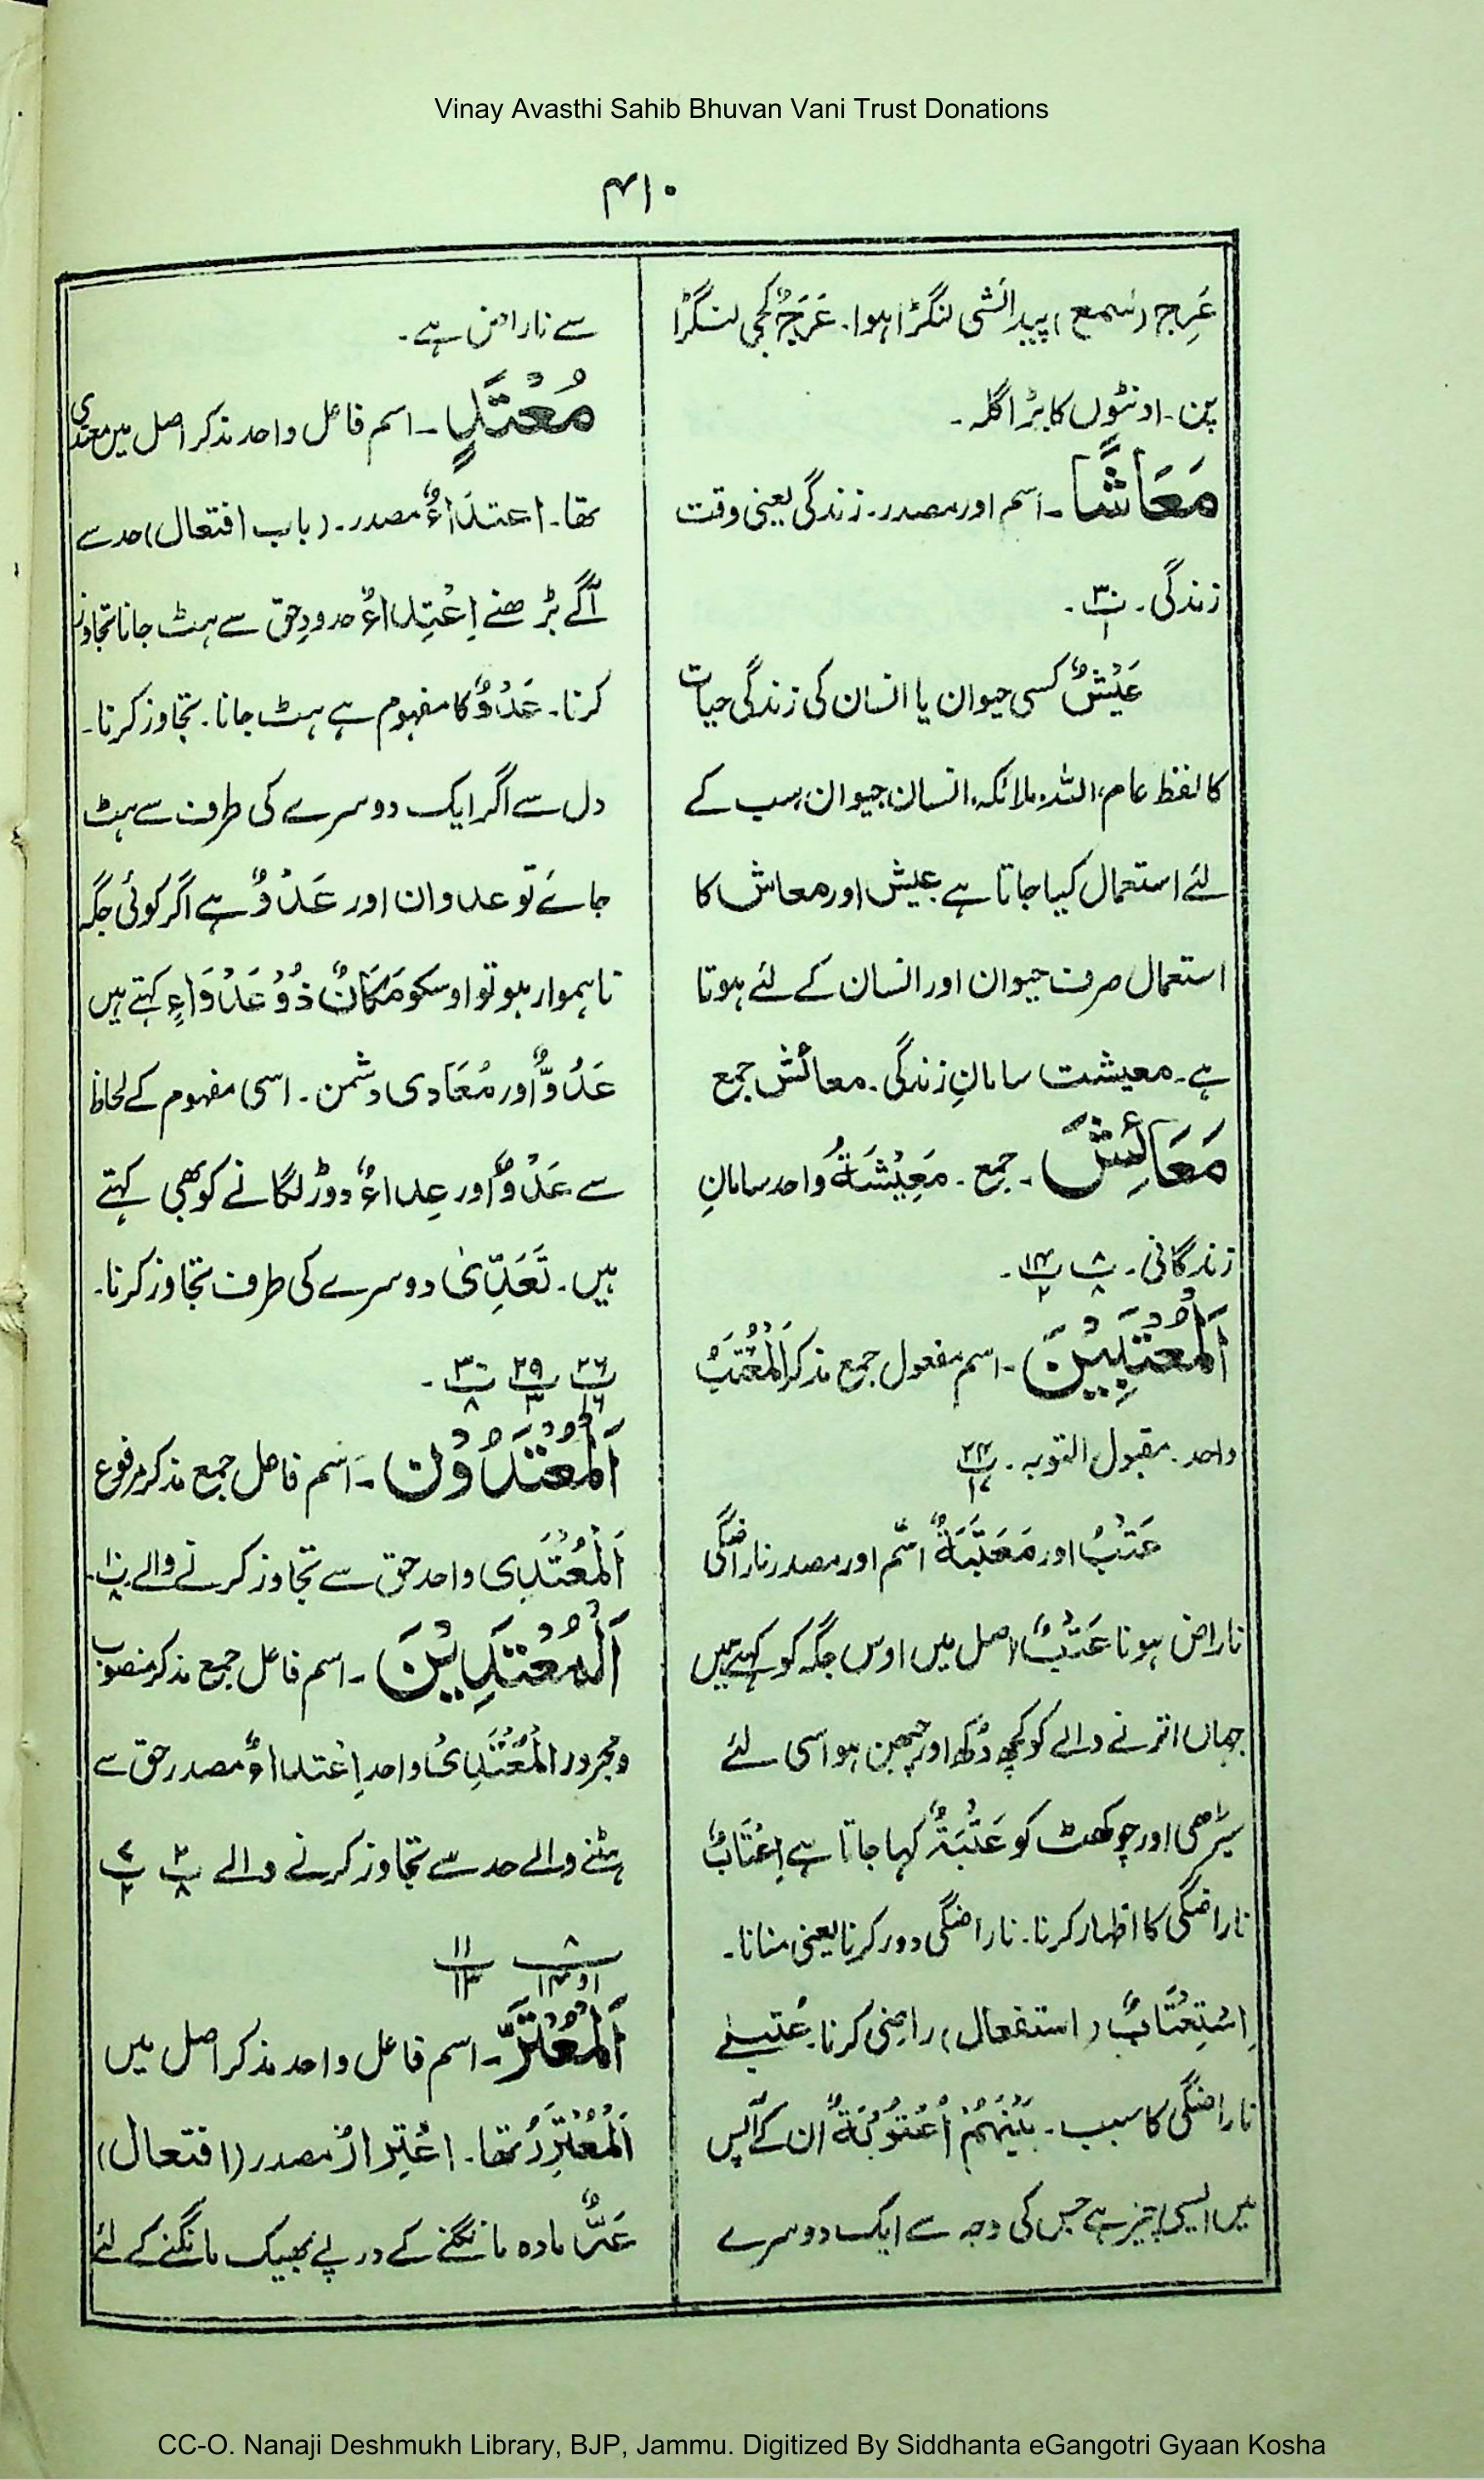 Vinay Avasthi Sahib Bhuvan Vani Trust Donations
۴۱۰
عَرِج (سَمع) پیدائشی لنگڑا ہوا۔ عَرَجٌ کجی لنگڑا
پن۔ اونٹوں کا بڑا گلہ۔
مَعَاشًا ۔ اسم اور مصدر۔ زندگی یعنی وقت
زندگی۔ پ۳۰/۱ ۔
عَیْشٌ کسی حیوان یا انسان کی زندگی حیات
کا لفظ عام، اللہ، ملائکہ، انسان، حیوان، سب کے
لئے استعمال کیا جاتا ہے عیش اور معاش کا
استعمال صرف حیوان اور انسان کے لئے ہوتا
ہے۔ معیشت سامانِ زندگی۔ معائش جمع
مَعَائِشَ ۔ جمع ۔ مَعِیْشَةٌ واحد سامانِ
زندگانی۔ پ۸/۸ پ۱۴/۲ ۔
اَلْمُعْتَبِیْنَ ۔ اسم مفعول جمع مذکر اَلْمُعْتَبُ
واحد۔ مقبول التوبہ۔ پ۲۴/۱۷
عَتْبٌ اور مَعْتَبَةٌ اسم اور مصدر ناراضگی
ناراض ہونا عَتْبٌ اصل میں اوس جگہ کو کہتے ہیں
جہاں اترنے والے کو کچھ دُکھ اور چبھن ہو اسی لئے
سیڑھی اور چوکھٹ کو عَتَبَةٌ کہا جاتا ہے اِعْتَابٌ
ناراضگی کا اظہار کرنا۔ ناراضگی دور کرنا یعنی منانا۔
اِسْتِعْتَابٌ (استفعال) راضی کرنا۔ عُتبیٰ
ناراضگی کا سبب۔ بَیْنَهُمْ اُعْتُوْبَةٌ ان کے آپس
میں ایسی چیز ہے جس کی وجہ سے ایک دوسرے
سے ناراض ہے۔
مُعْتَدٍ ۔ اسم فاعل واحد مذکر اصل میں معتدی
تھا۔ اعتدَاءٌ مصدر۔ (باب افتعال) حد سے
آگے بڑھنے اِعْتِدَاءٌ حدودِ حق سے ہٹ جانا تجاوز
کرنا۔ عَدْوٌ کا مفہوم ہے ہٹ جانا۔ تجاوز کرنا۔
دل سے اگر ایک دوسرے کی طرف سے ہٹ
جائے تو عدوان اور عَدْوٌ ہے اگر کوئی جگہ
ناہموار ہو تو اوسکو مَکَانٌ ذُوْ عَدْوَاءِ کہتے ہیں
عَدُوٌّ اور مُعَادی دشمن۔ اسی مفہوم کے لحاظ
سے عَدْوٌ اور عِداءٌ دوڑ لگانے کو بھی کہتے
ہیں۔ تَعَدِّیٰ دوسرے کی طرف تجاوز کرنا۔
پ۲۶/۱۶ پ۲۹/۳ پ۳۰/۸ ۔
اَلْمُعْتَدُوْن ۔ اسم فاعل جمع مذکر مرفوع
اَلْمُعْتَدِی واحد حق سے تجاوز کرنے والے پ۱۰/۸
اَلْمُعْتَدِیْنَ ۔ اسم فاعل جمع مذکر منصوب
ومجرور المُعْتَدِیُ واحد اِعْتداءٌ مصدر حق سے
ہٹنے والے حد سے تجاوز کرنے والے پ۲/۸ پ۷/۲
پ۸/۱و۱۴ ۱۱/۱۳
اَلْمُعْتَرَّ ۔ اسم فاعل واحد مذکر اصل میں
اَلْمُعْتَرِرُ تھا۔ اعْتِرارٌ مصدر (افتعال)
عَرٌّ مادہ مانگنے کے درپے بھیک مانگنے کے لئے
CC-O. Nanaji Deshmukh Library, BJP, Jammu. Digitized By Siddhanta eGangotri Gyaan Kosha